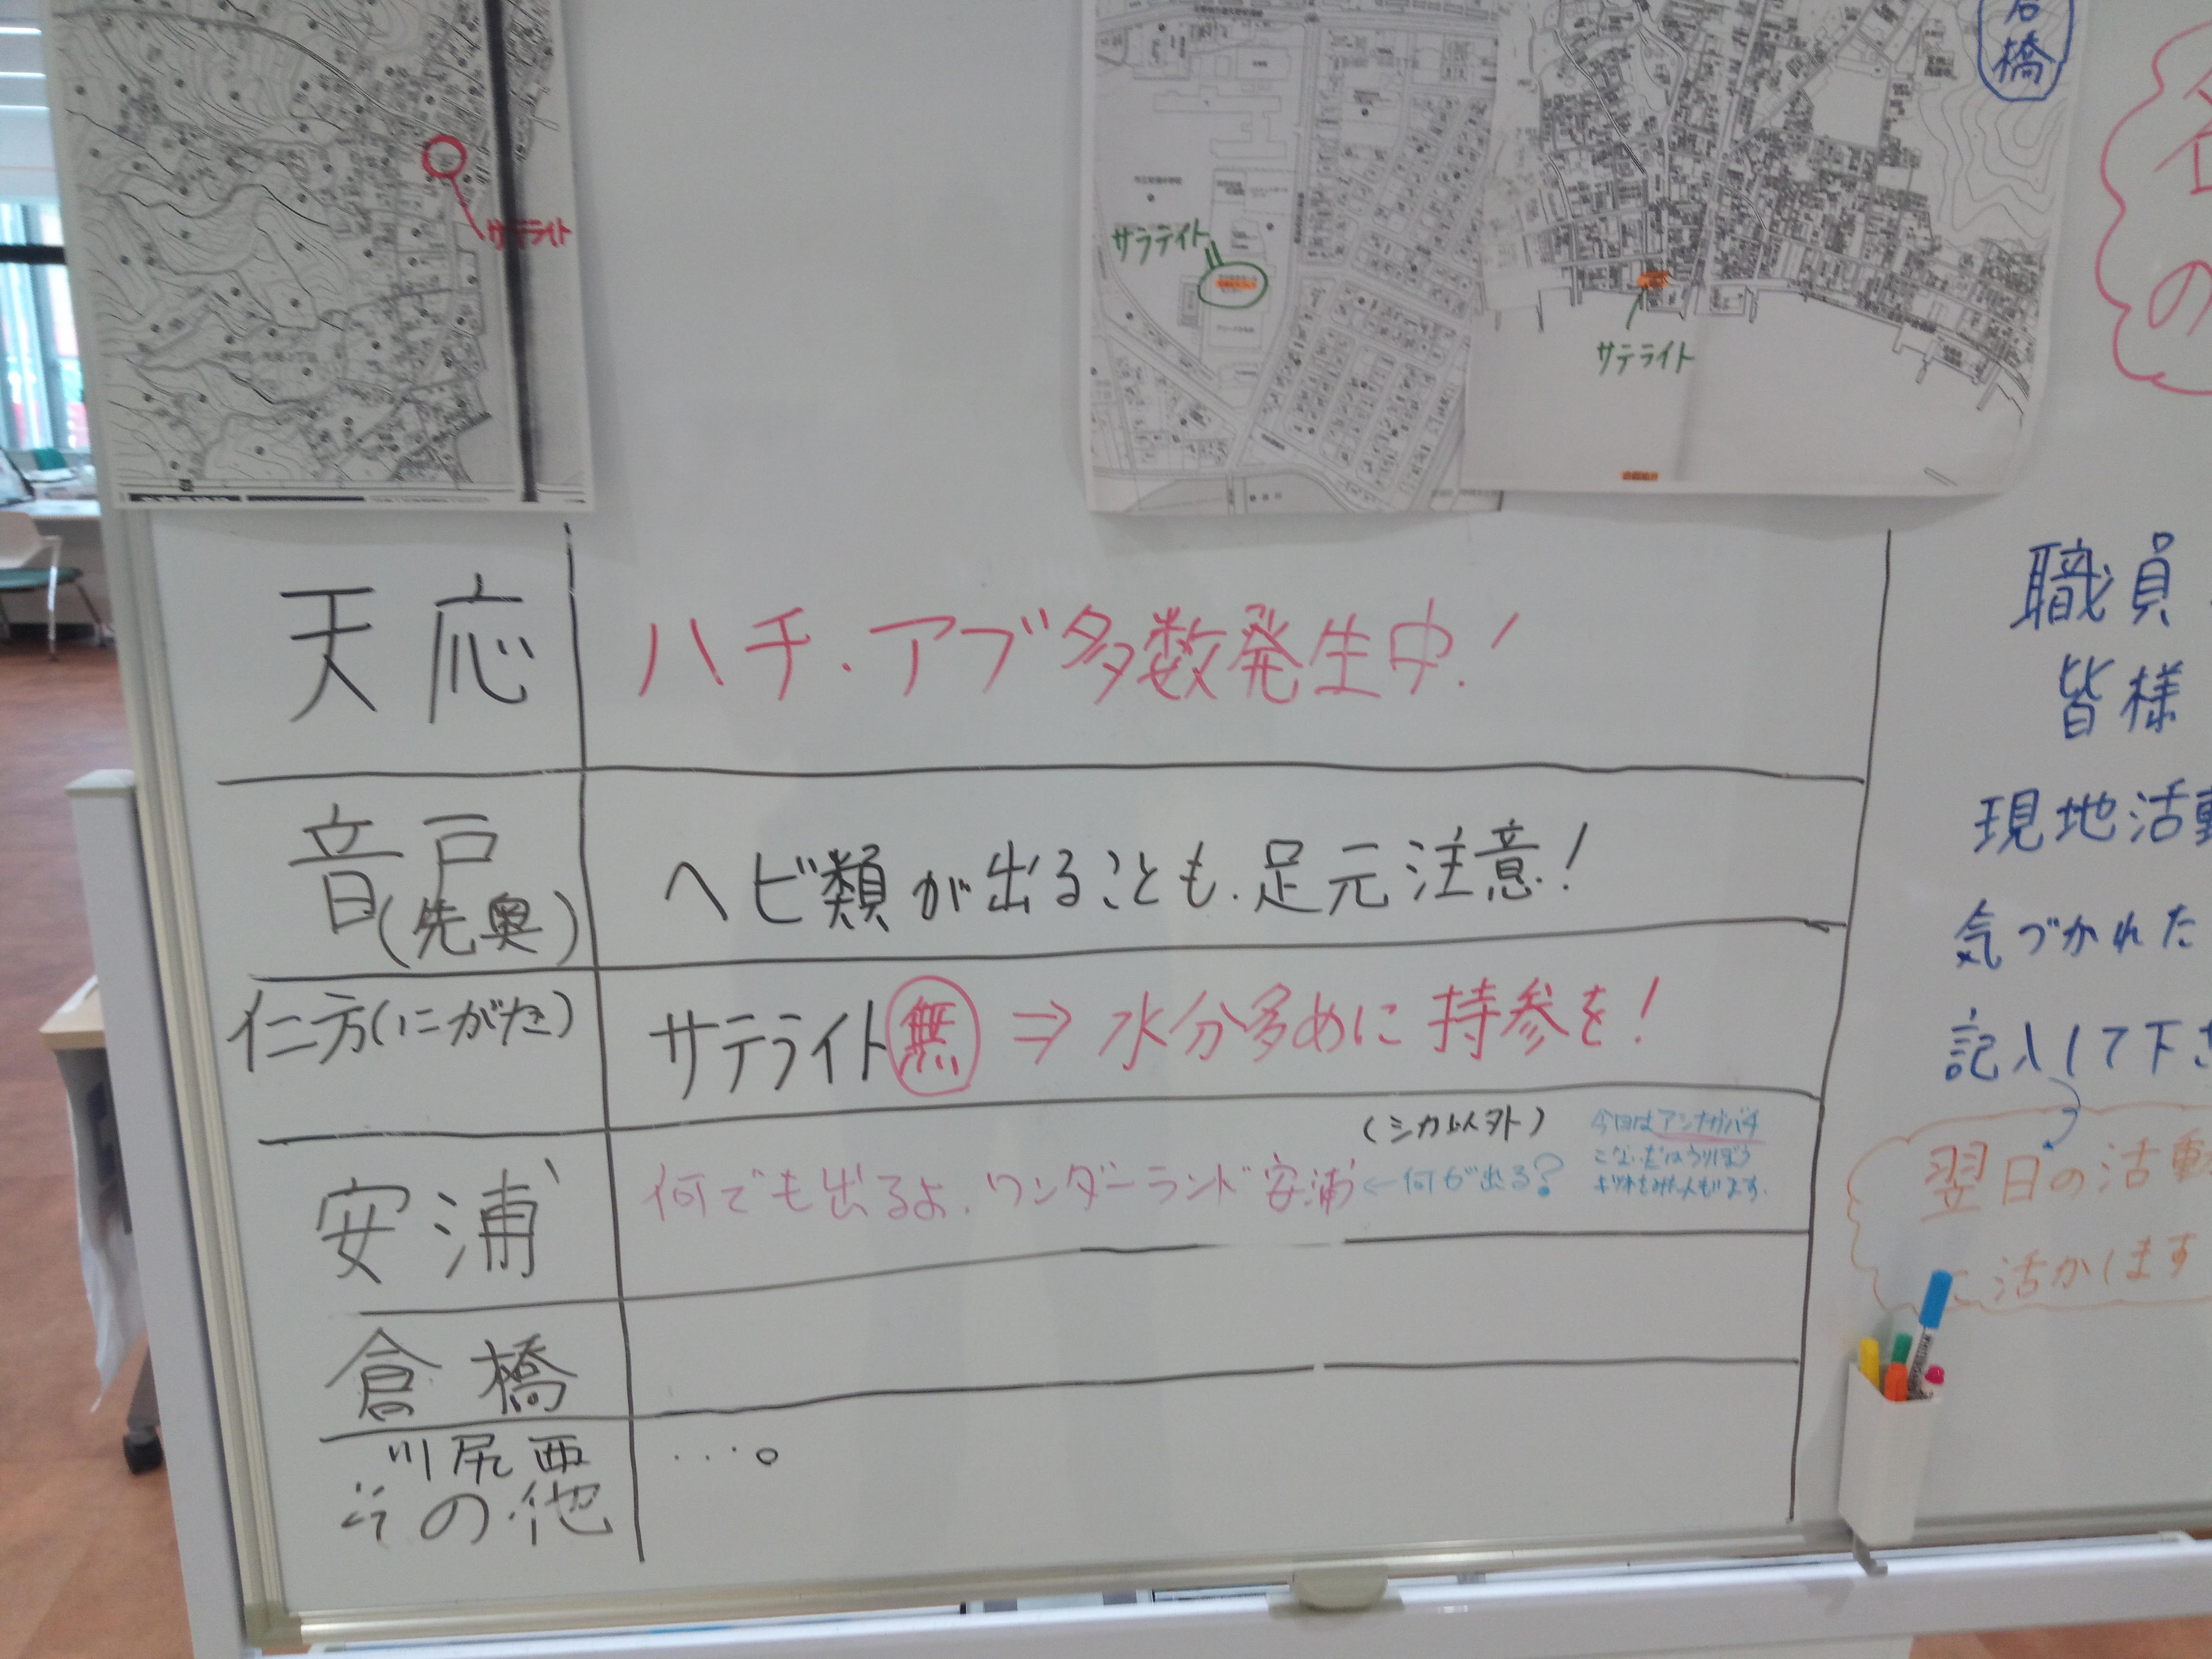 サテライト
サラテイト
サテライト
橋
の
天応
ハチ・アブ多数発生中!
音戸
(先奥)
ヘビ類が出ることも.足元注意!
仁方(にがた)
サテライト無 ⇒ 水分多めに持参を!
安浦
(シカ以外)
何でも出るよ.ワンダーランド安浦 ←何が出る?
今日はアシナガバチ
こないだはうりぼう
倉橋
川尻西
その他
・・・。
職員
皆様
現地活動
気づかれた
記入して下さ
翌日の活動
に活かします